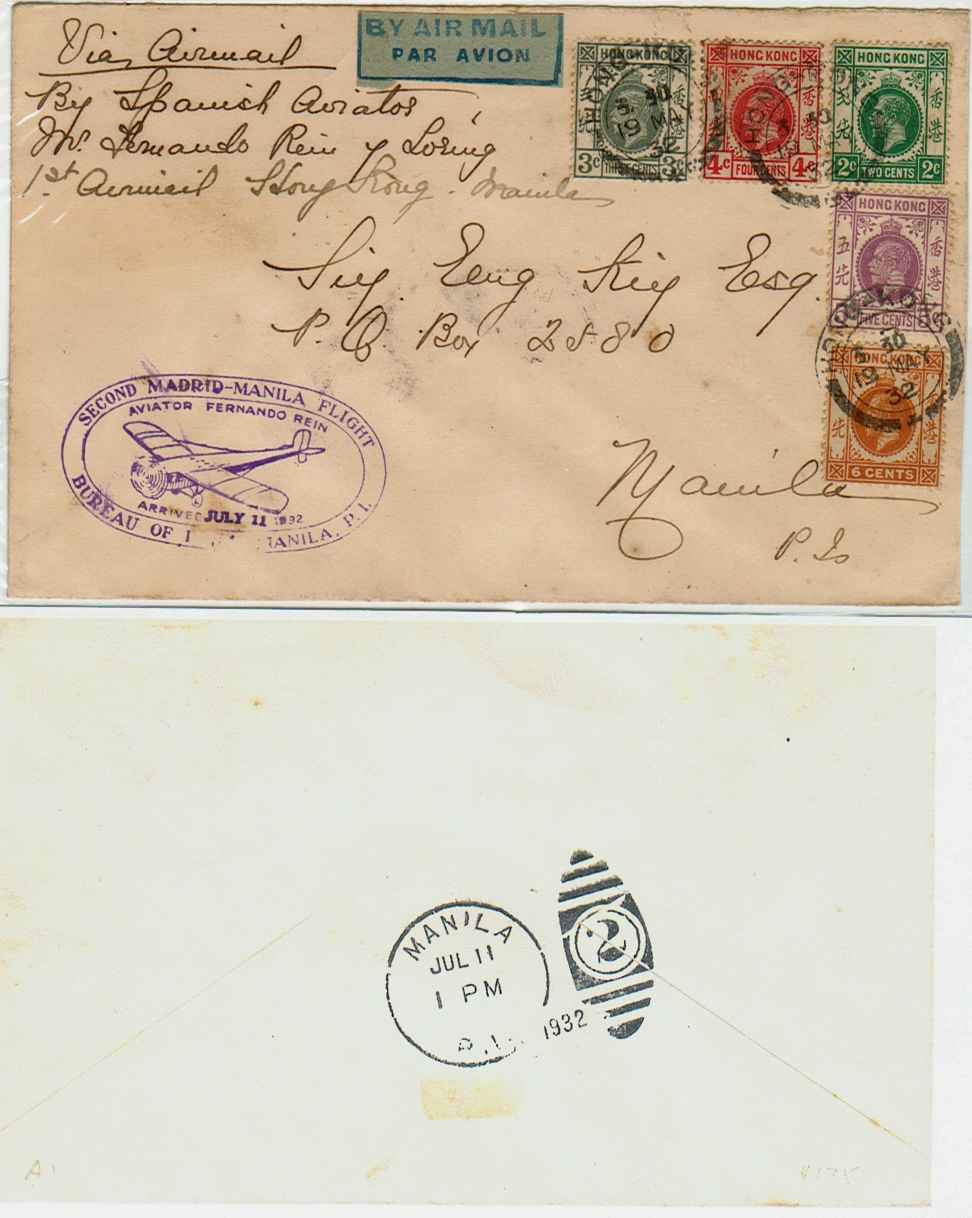 Via Airmail
BY AIR MAIL
PAR AVION
By Spanish Aviator
Mr Fernando Rein y Loring
1st Airmail Hong Kong - Manila
HONG KONG
香港
3c THREE CENTS 3c
HONG KONG
香港
4c FOUR CENTS 4c
HONG KONG
香港
2c TWO CENTS 2c
HONG KONG
香港
五先
FIVE CENTS
HONG KONG
6 CENTS
HONG
30
19 MAY
32
HONG KONG
30
19 MAY
32
Esq.
P.O. Box 2580
Manila
P. Is
SECOND MADRID-MANILA FLIGHT
AVIATOR FERNANDO REIN
ARRIVED JULY 11 1932
BUREAU OF MANILA, P. I.
MANILA
JUL 11
1 PM
P.I.
1932
2
A1
$175